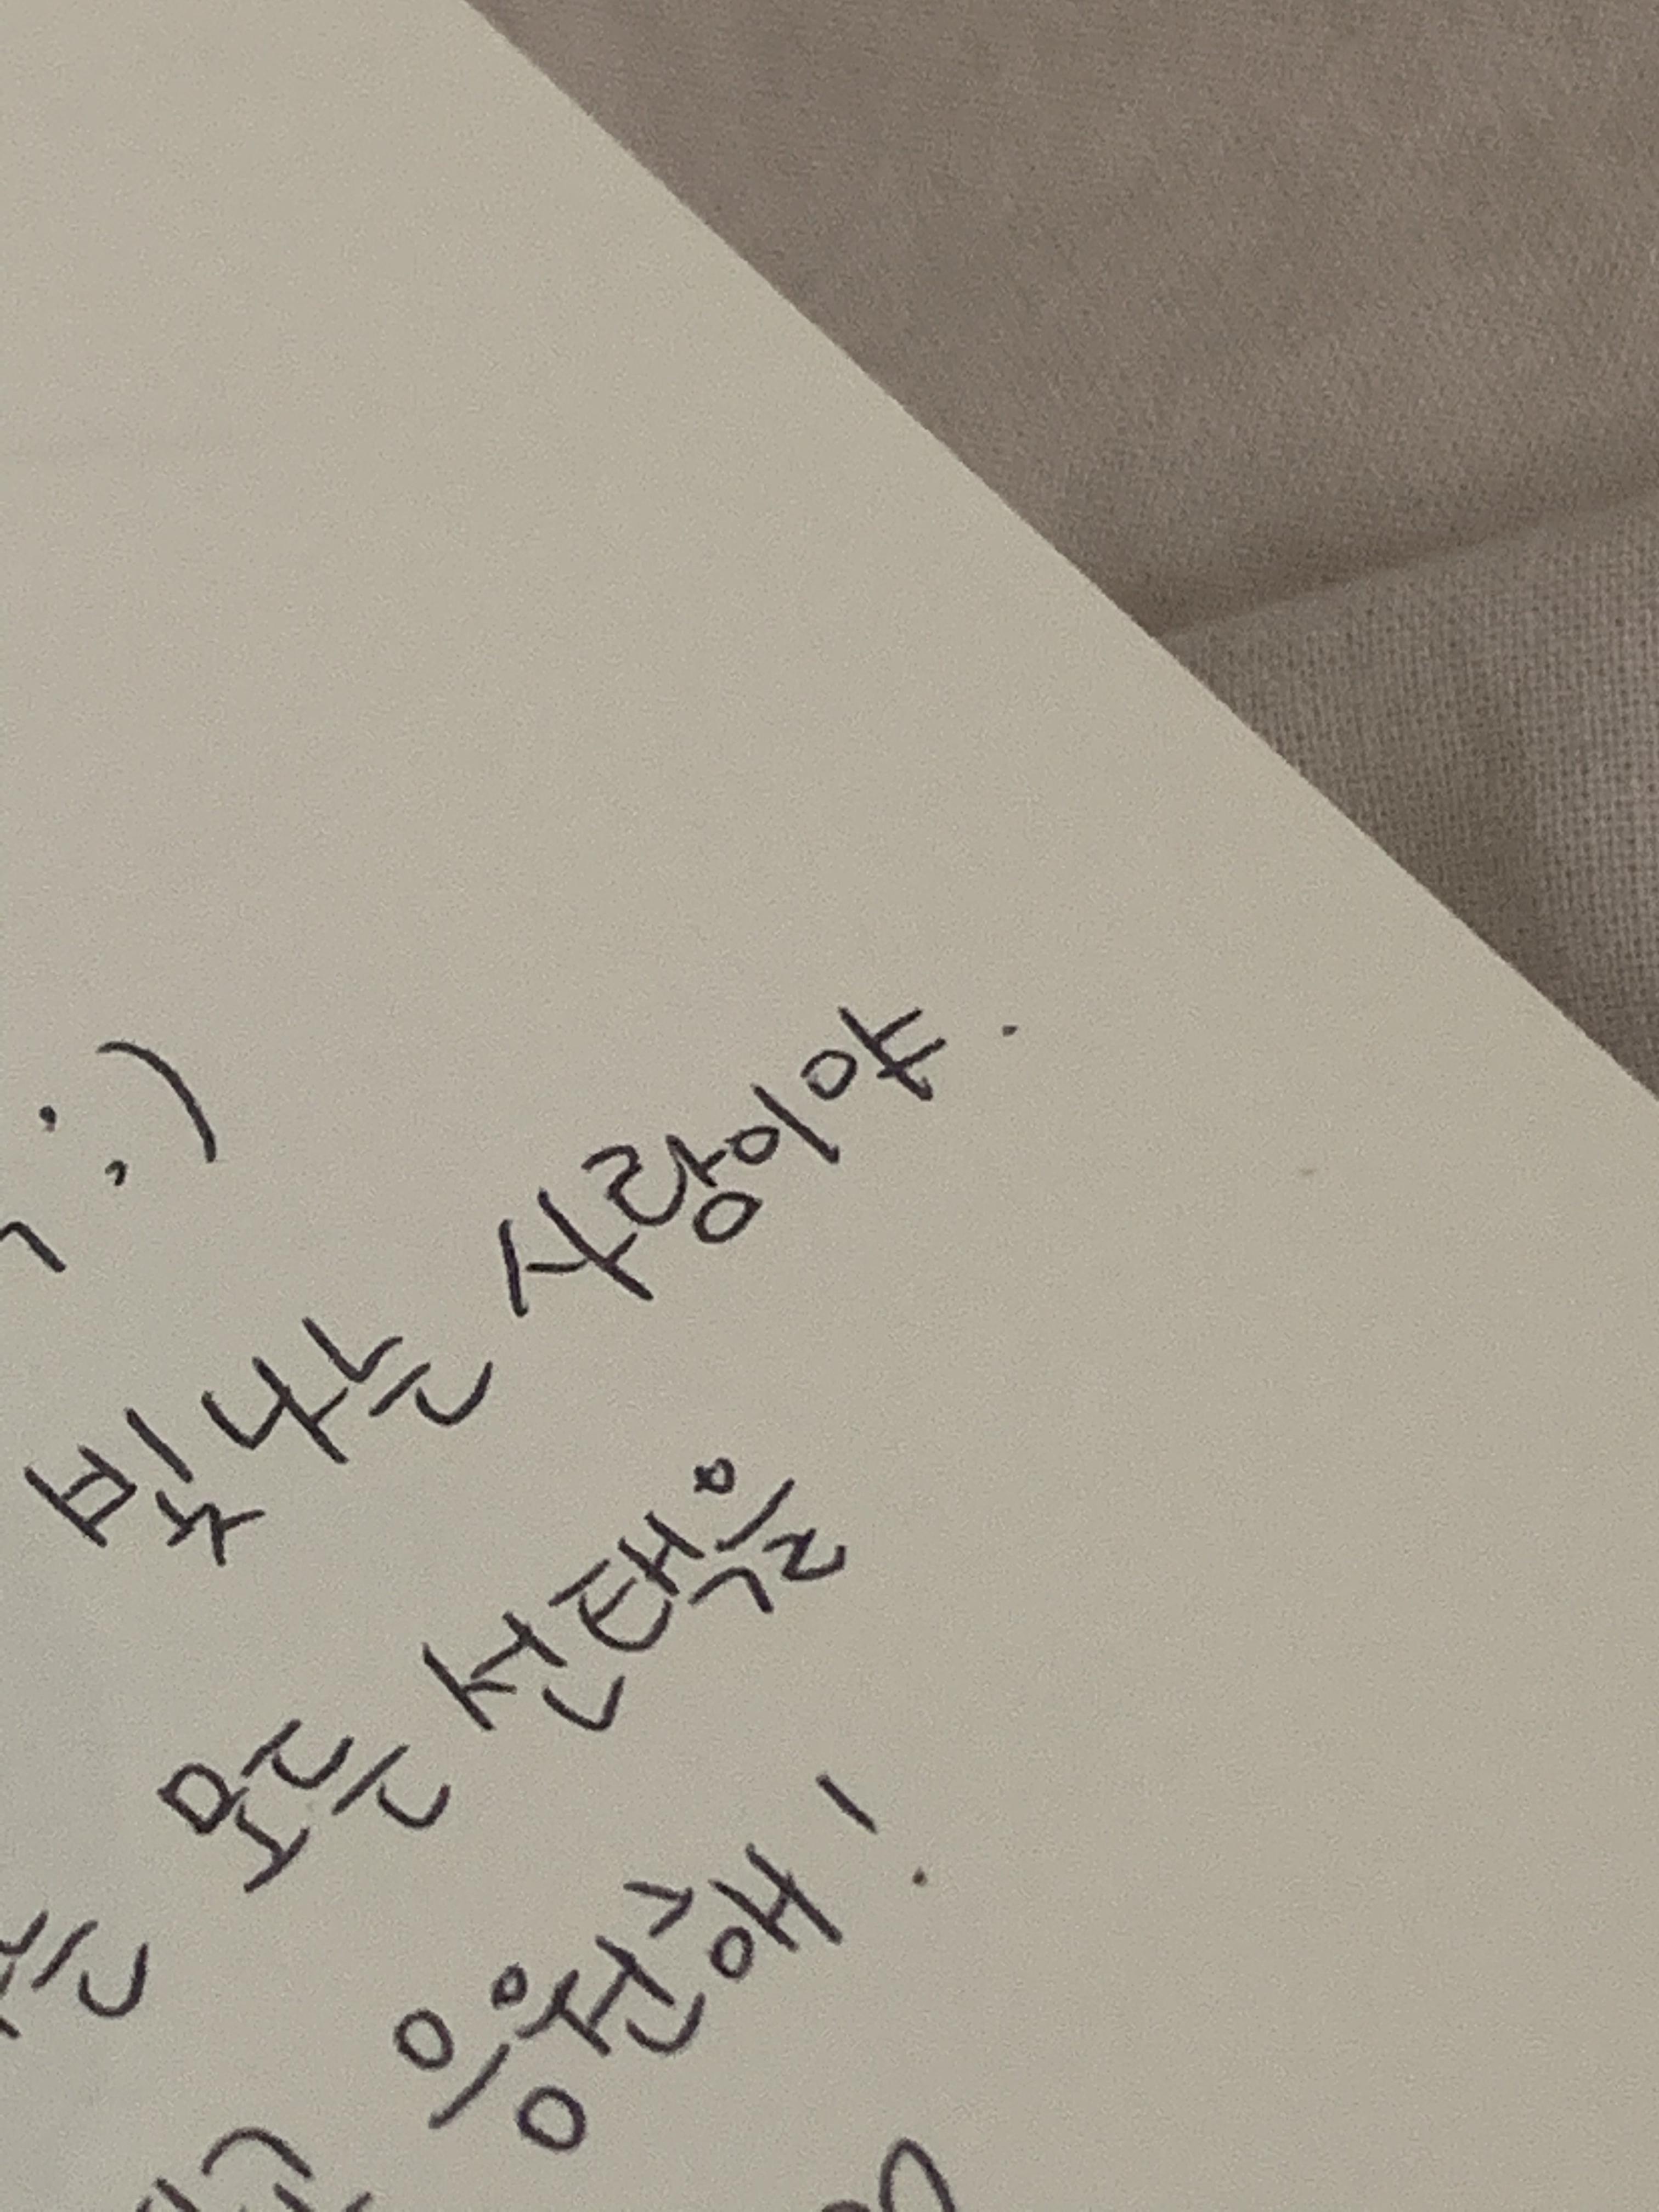 :)
빛나는 사랑이야.
모든 선택을
응원해!